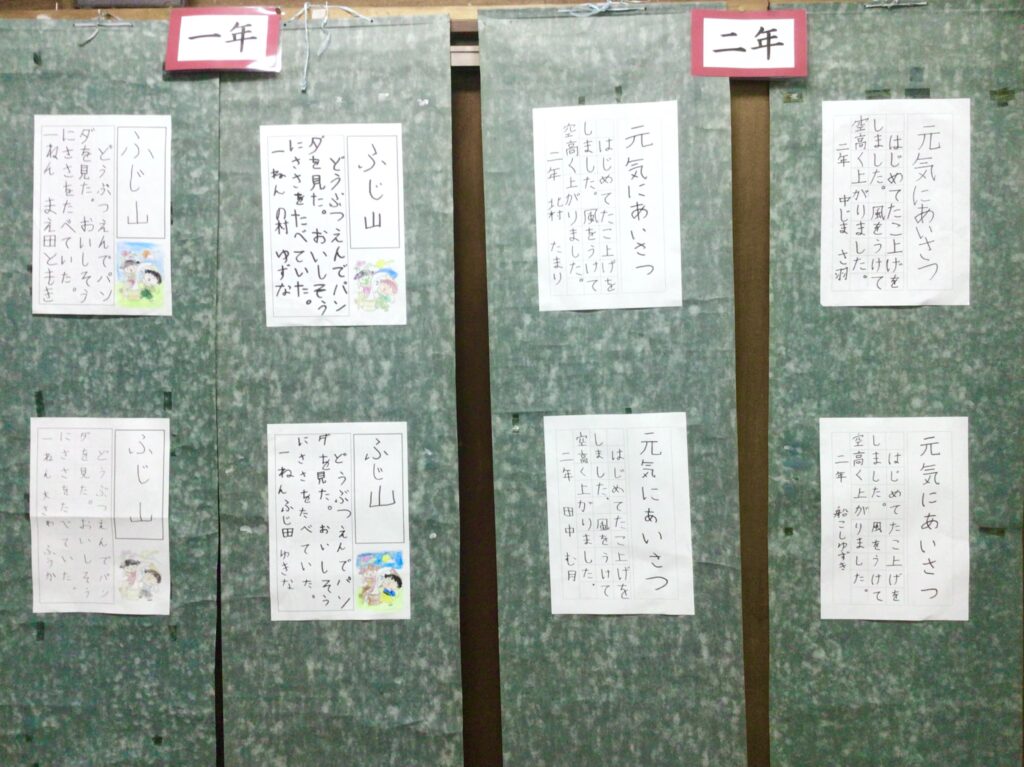 一年
ふじ山
どうぶつえんでパン
ダを見た。おいしそう
にささをたべていた。
一ねん まえ田ともき
ふじ山
どうぶつえんでパン
ダを見た。おいしそう
にささをたべていた。
一ねん の村 ゆずな
ふじ山
どうぶつえんでパン
ダを見た。おいしそう
にささをたべていた。
一ねん 大さわ ふうか
ふじ山
どうぶつえんでパン
ダを見た。おいしそう
にささをたべていた。
一ねん ふじ田 ゆきな
二年
元気にあいさつ
はじめてたこ上げを
しました。風をうけて
空高く上がりました。
二年 北村 たまり
元気にあいさつ
はじめてたこ上げを
しました。風をうけて
空高く上がりました。
二年 中じま さ羽
元気にあいさつ
はじめてたこ上げを
しました。風をうけて
空高く上がりました。
二年 田中 む月
元気にあいさつ
はじめてたこ上げを
しました。風をうけて
空高く上がりました。
二年 船こしゆずき